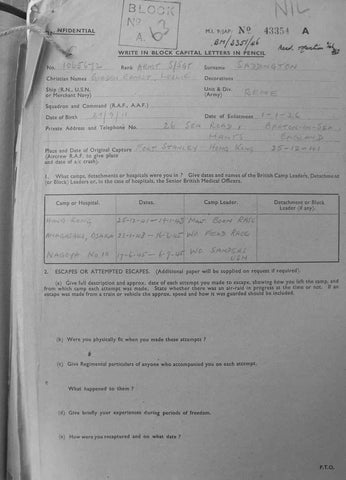 BLOCK
No 3
A.
NIL
NFIDENTIAL
M.I. 9/JAP/ No 43354 A
WRITE IN BLOCK CAPITAL LETTERS IN PENCIL
No. 1065672 Rank ARMT S/SGT Surname SADDINGTON
Christian Names LESLIE Decorations
Ship (R.N., U.S.N. or Merchant Navy)
Unit & Div. (Army) REME
Squadron and Command (R.A.F., A.A.F.)
Date of Birth 27/9/11 Date of Enlistment 1-1-26
Private Address and Telephone No. 26 SEA ROAD, BARTON-ON-SEA,
HANTS ENGLAND
Place and Date of Original Capture FORT STANLEY HONG KONG 25-12-41
(Aircrew R.A.F. to give place
and date of a/c crash).
1. What camps, detachments or hospitals were you in ? Give dates and names of the British Camp Leaders, Detachment
(or Block) Leaders or, in the case of hospitals, the Senior British Medical Officers.
Camp or Hospital. Dates. Camp Leader. Detachment or Block Leader (if any).
HONG KONG 25-12-41 MAJ BOON RASC
AMAGASAKI, OSAKA
NAGOYA No 10 17-6-45 WO SANDERS
USN
2. ESCAPES OR ATTEMPTED ESCAPES. (Additional paper will be supplied on request if required).
(a) Give full description and approx. date of each attempt you made to escape, showing how you left the camp, and
from which camp each attempt was made. State whether there was an air-raid in progress at the time or not. If an
escape was made from a train or vehicle the approx. speed and how it was guarded should be included.
(b) Were you physically fit when you made these attempts ?
(c) Give Regimental particulars of anyone who accompanied you on each attempt.
What happened to them ?
(d) Give briefly your experiences during periods of freedom.
(e) How were you recaptured and on what date ?
P.T.O.